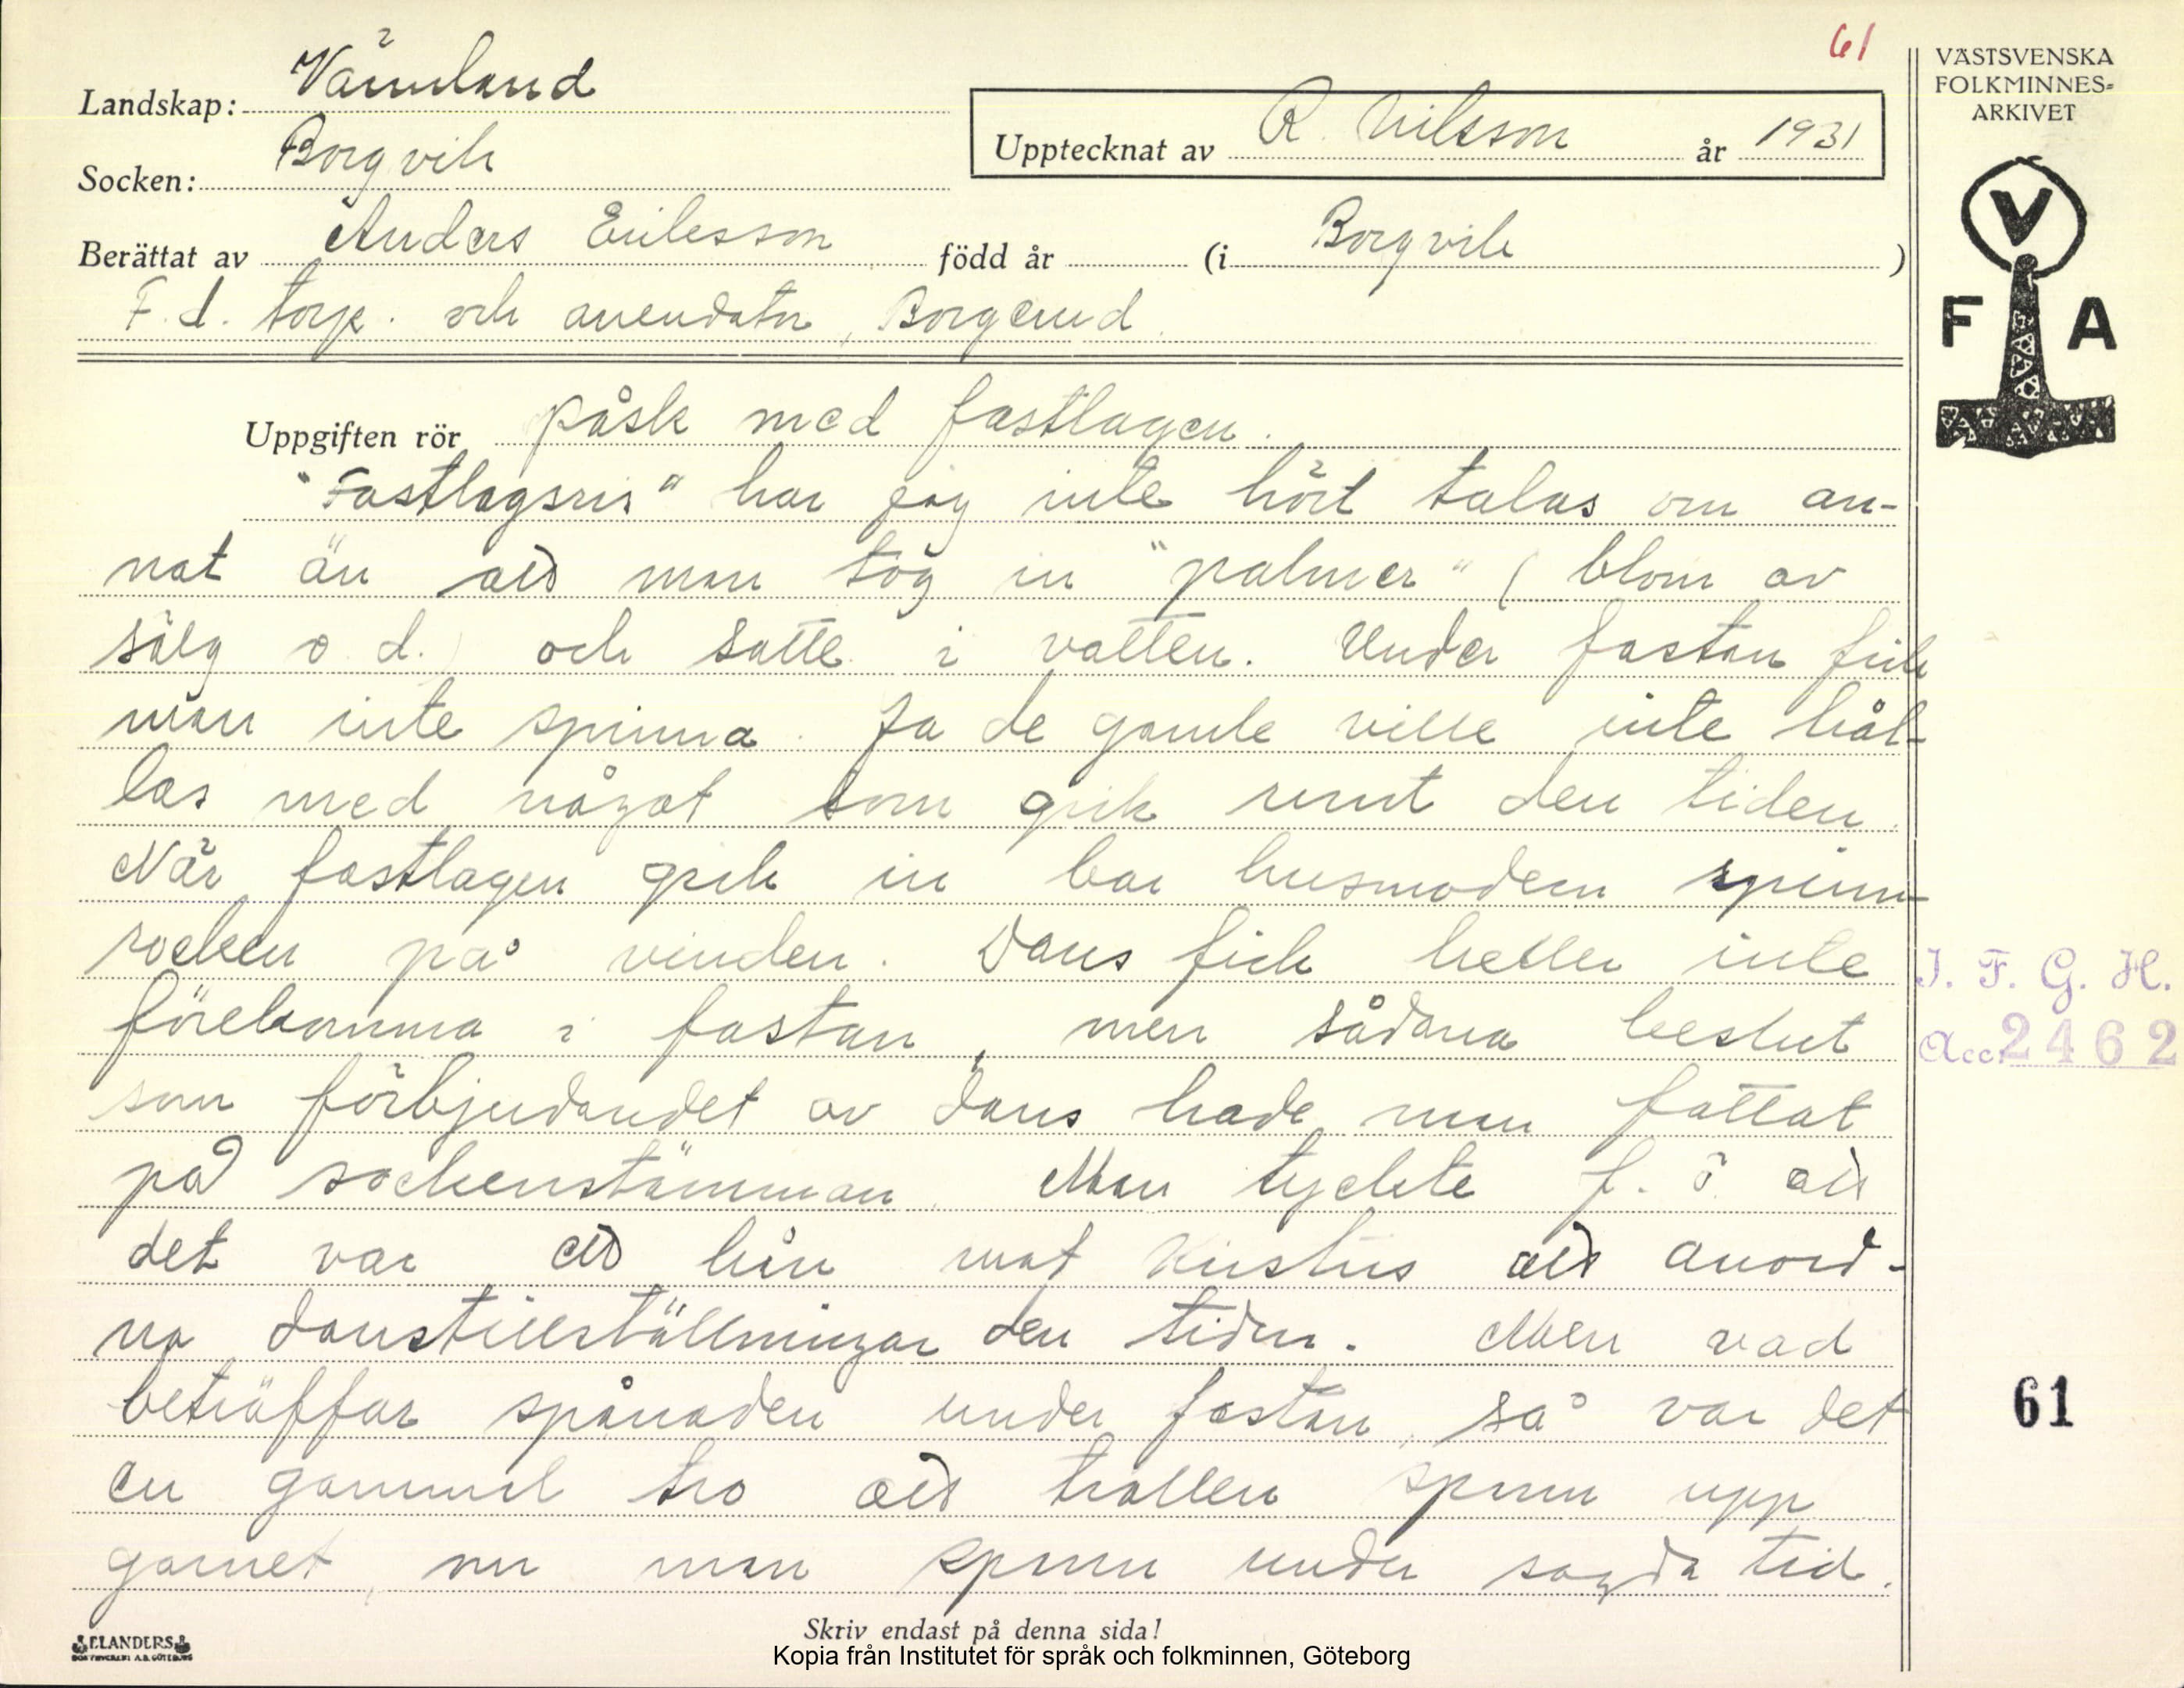 61
VÄSTSVENSKA
FOLKMINNES-
ARKIVET
V
F A
Landskap: Värmland
Socken: Borgvik
Upptecknat av R. Nilsson år 1931
Berättat av Anders Eriksson född år (i Borgvik )
F. d. torp. och arrendator, Borgerud.
Uppgiften rör påsk med fastlagen.
"Fastlagsris" har jag inte hört talas om an-
nat än att man tog in "palmer" (blom av
sälg o. d.) och satte i vatten. Under fastan fick
man inte spinna. Ja de gamle ville inte hål-
las med något som gick runt den tiden.
När fastlagen gick in bar husmodern spinn-
rocken på vinden. Dans fick heller inte
förekomma i fastan, men sådana beslut
som förbjudandet av dans hade man fattat
på sockenstämman. Man tyckte f. ö. att
det var att hån mot Kristus att anord-
na danstillställningar den tiden. Men vad
beträffar spånaden under fastan, så var det
en gammel tro att trollen spunn upp
garnet, om man spunn under sagda tid.
I. F. G. H.
Acc. 2462
61
Skriv endast på denna sida!
ELANDERS
BOKTRYCKERI A.B. GÖTEBORG
Kopia från Institutet för språk och folkminnen, Göteborg